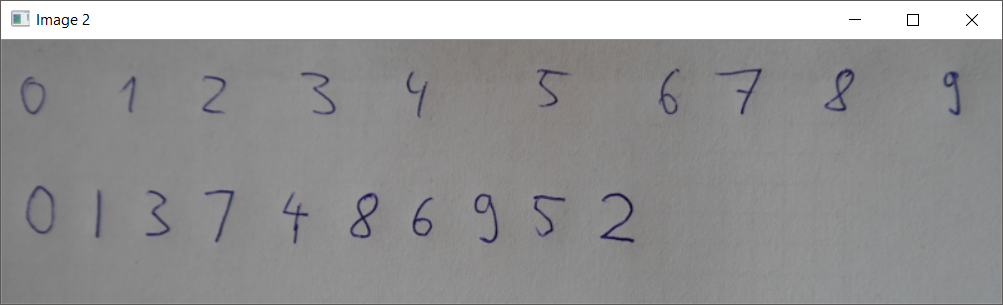 Image 2
0 1 2 3 4 5 6 7 8 9
0 1 3 7 4 8 6 9 5 2